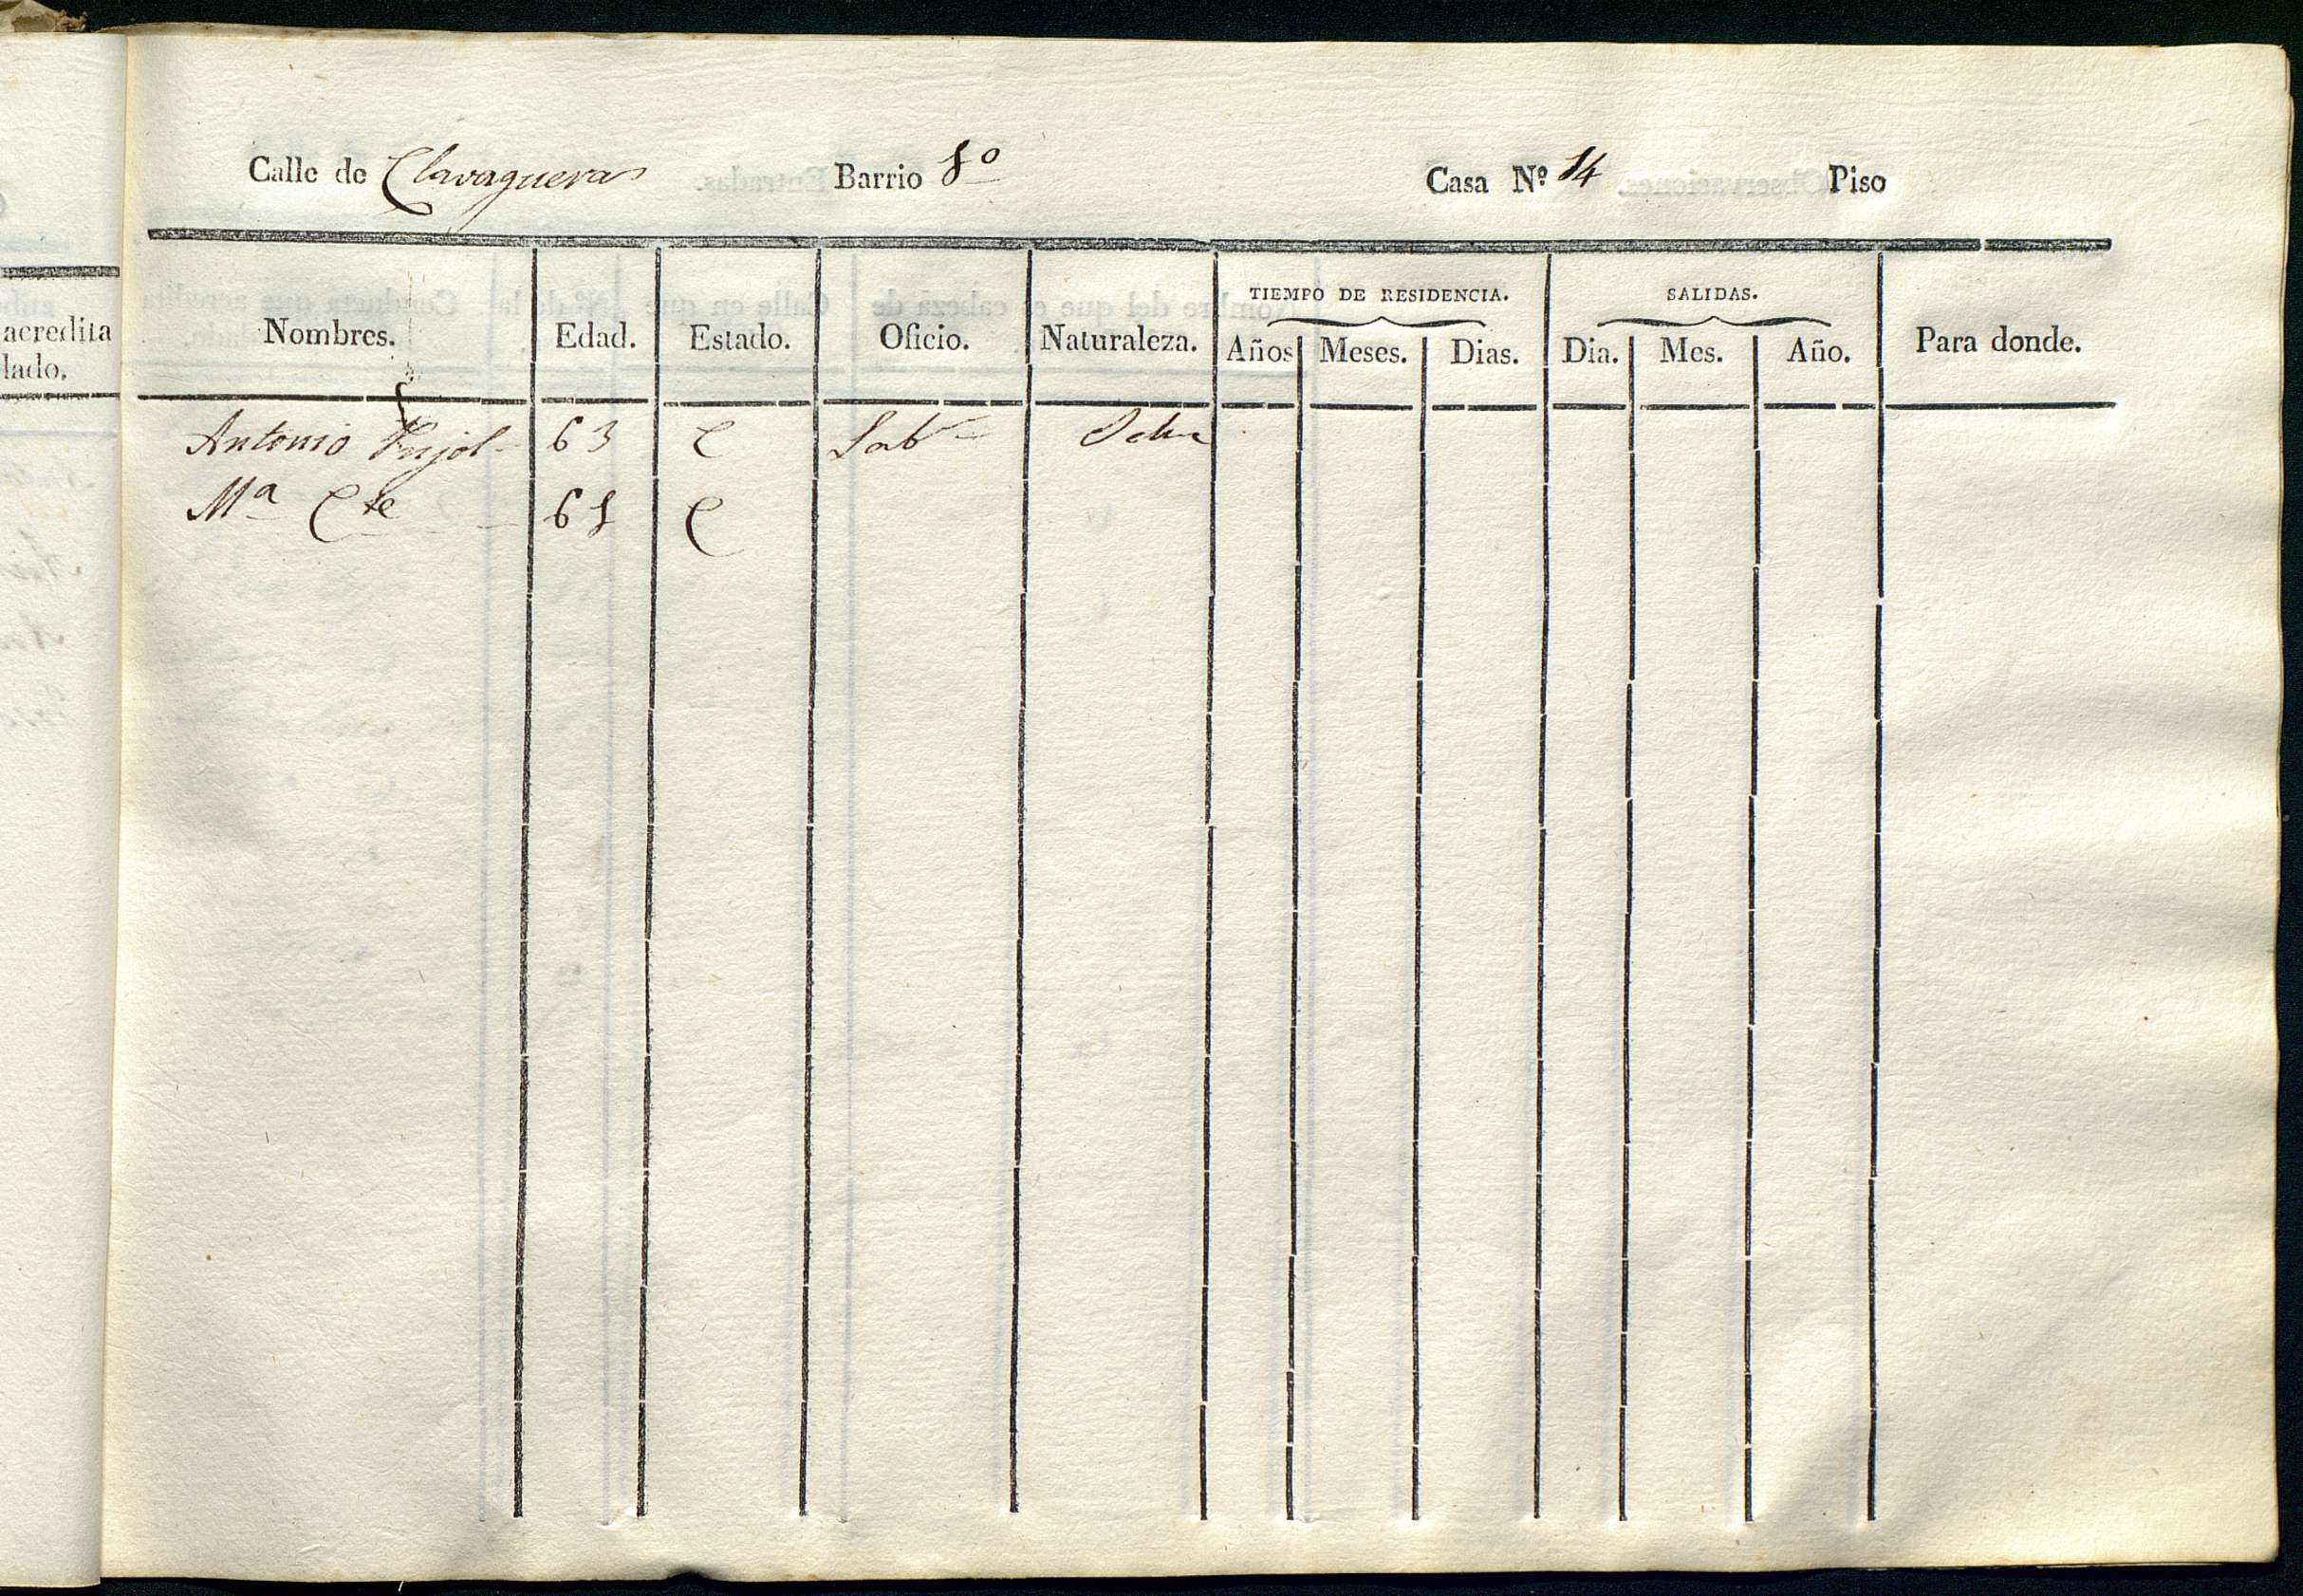 Calle de Clavagueras Barrio 1º Casa Nº 14 Piso
TIEMPO DE RESIDENCIA. SALIDAS.
Nombres. Edad. Estado. Oficio. Naturaleza. Años Meses. Dias. Dia. Mes. Año. Para donde.
Antonio Pujol 63 C Labr
Mª Cte 61 C
acredita
lado.